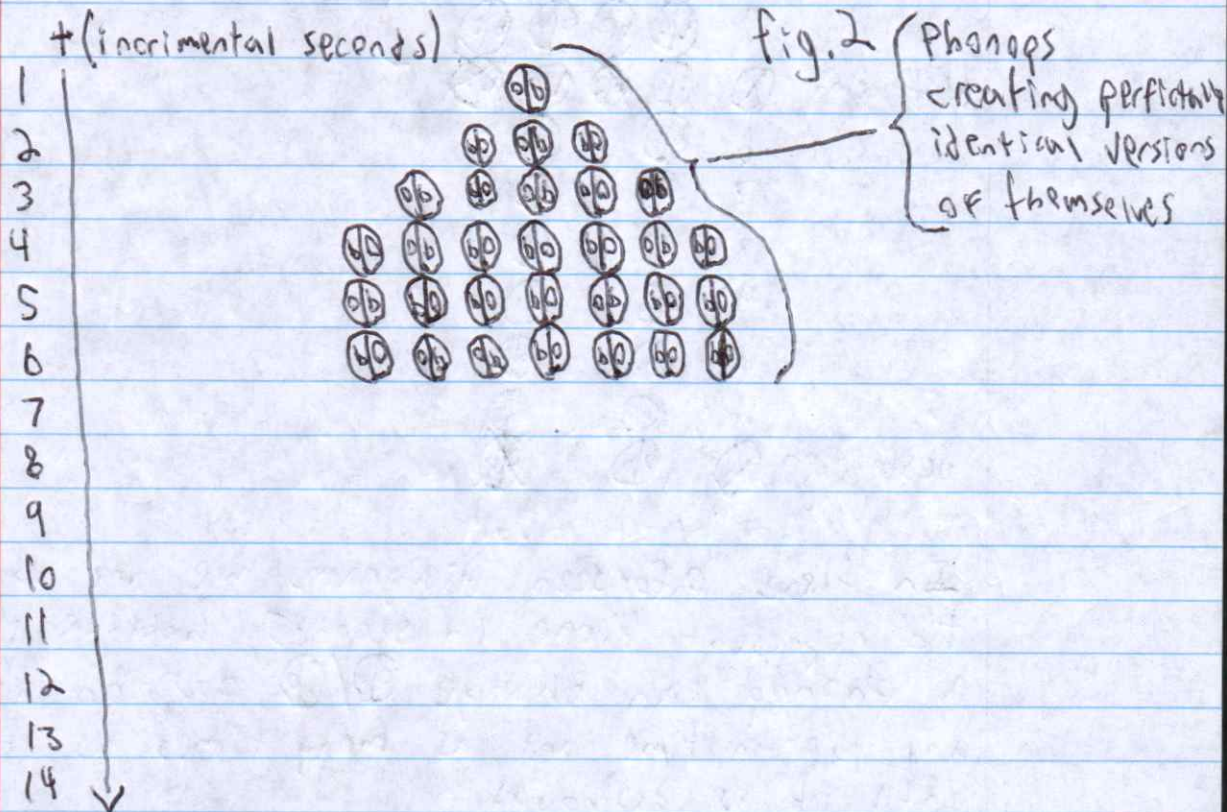 t (incrimental seconds)
fig.2
Phonops
creating perfictally
identical versions
of themselves
1
2
3
4
5
6
7
8
9
10
11
12
13
14